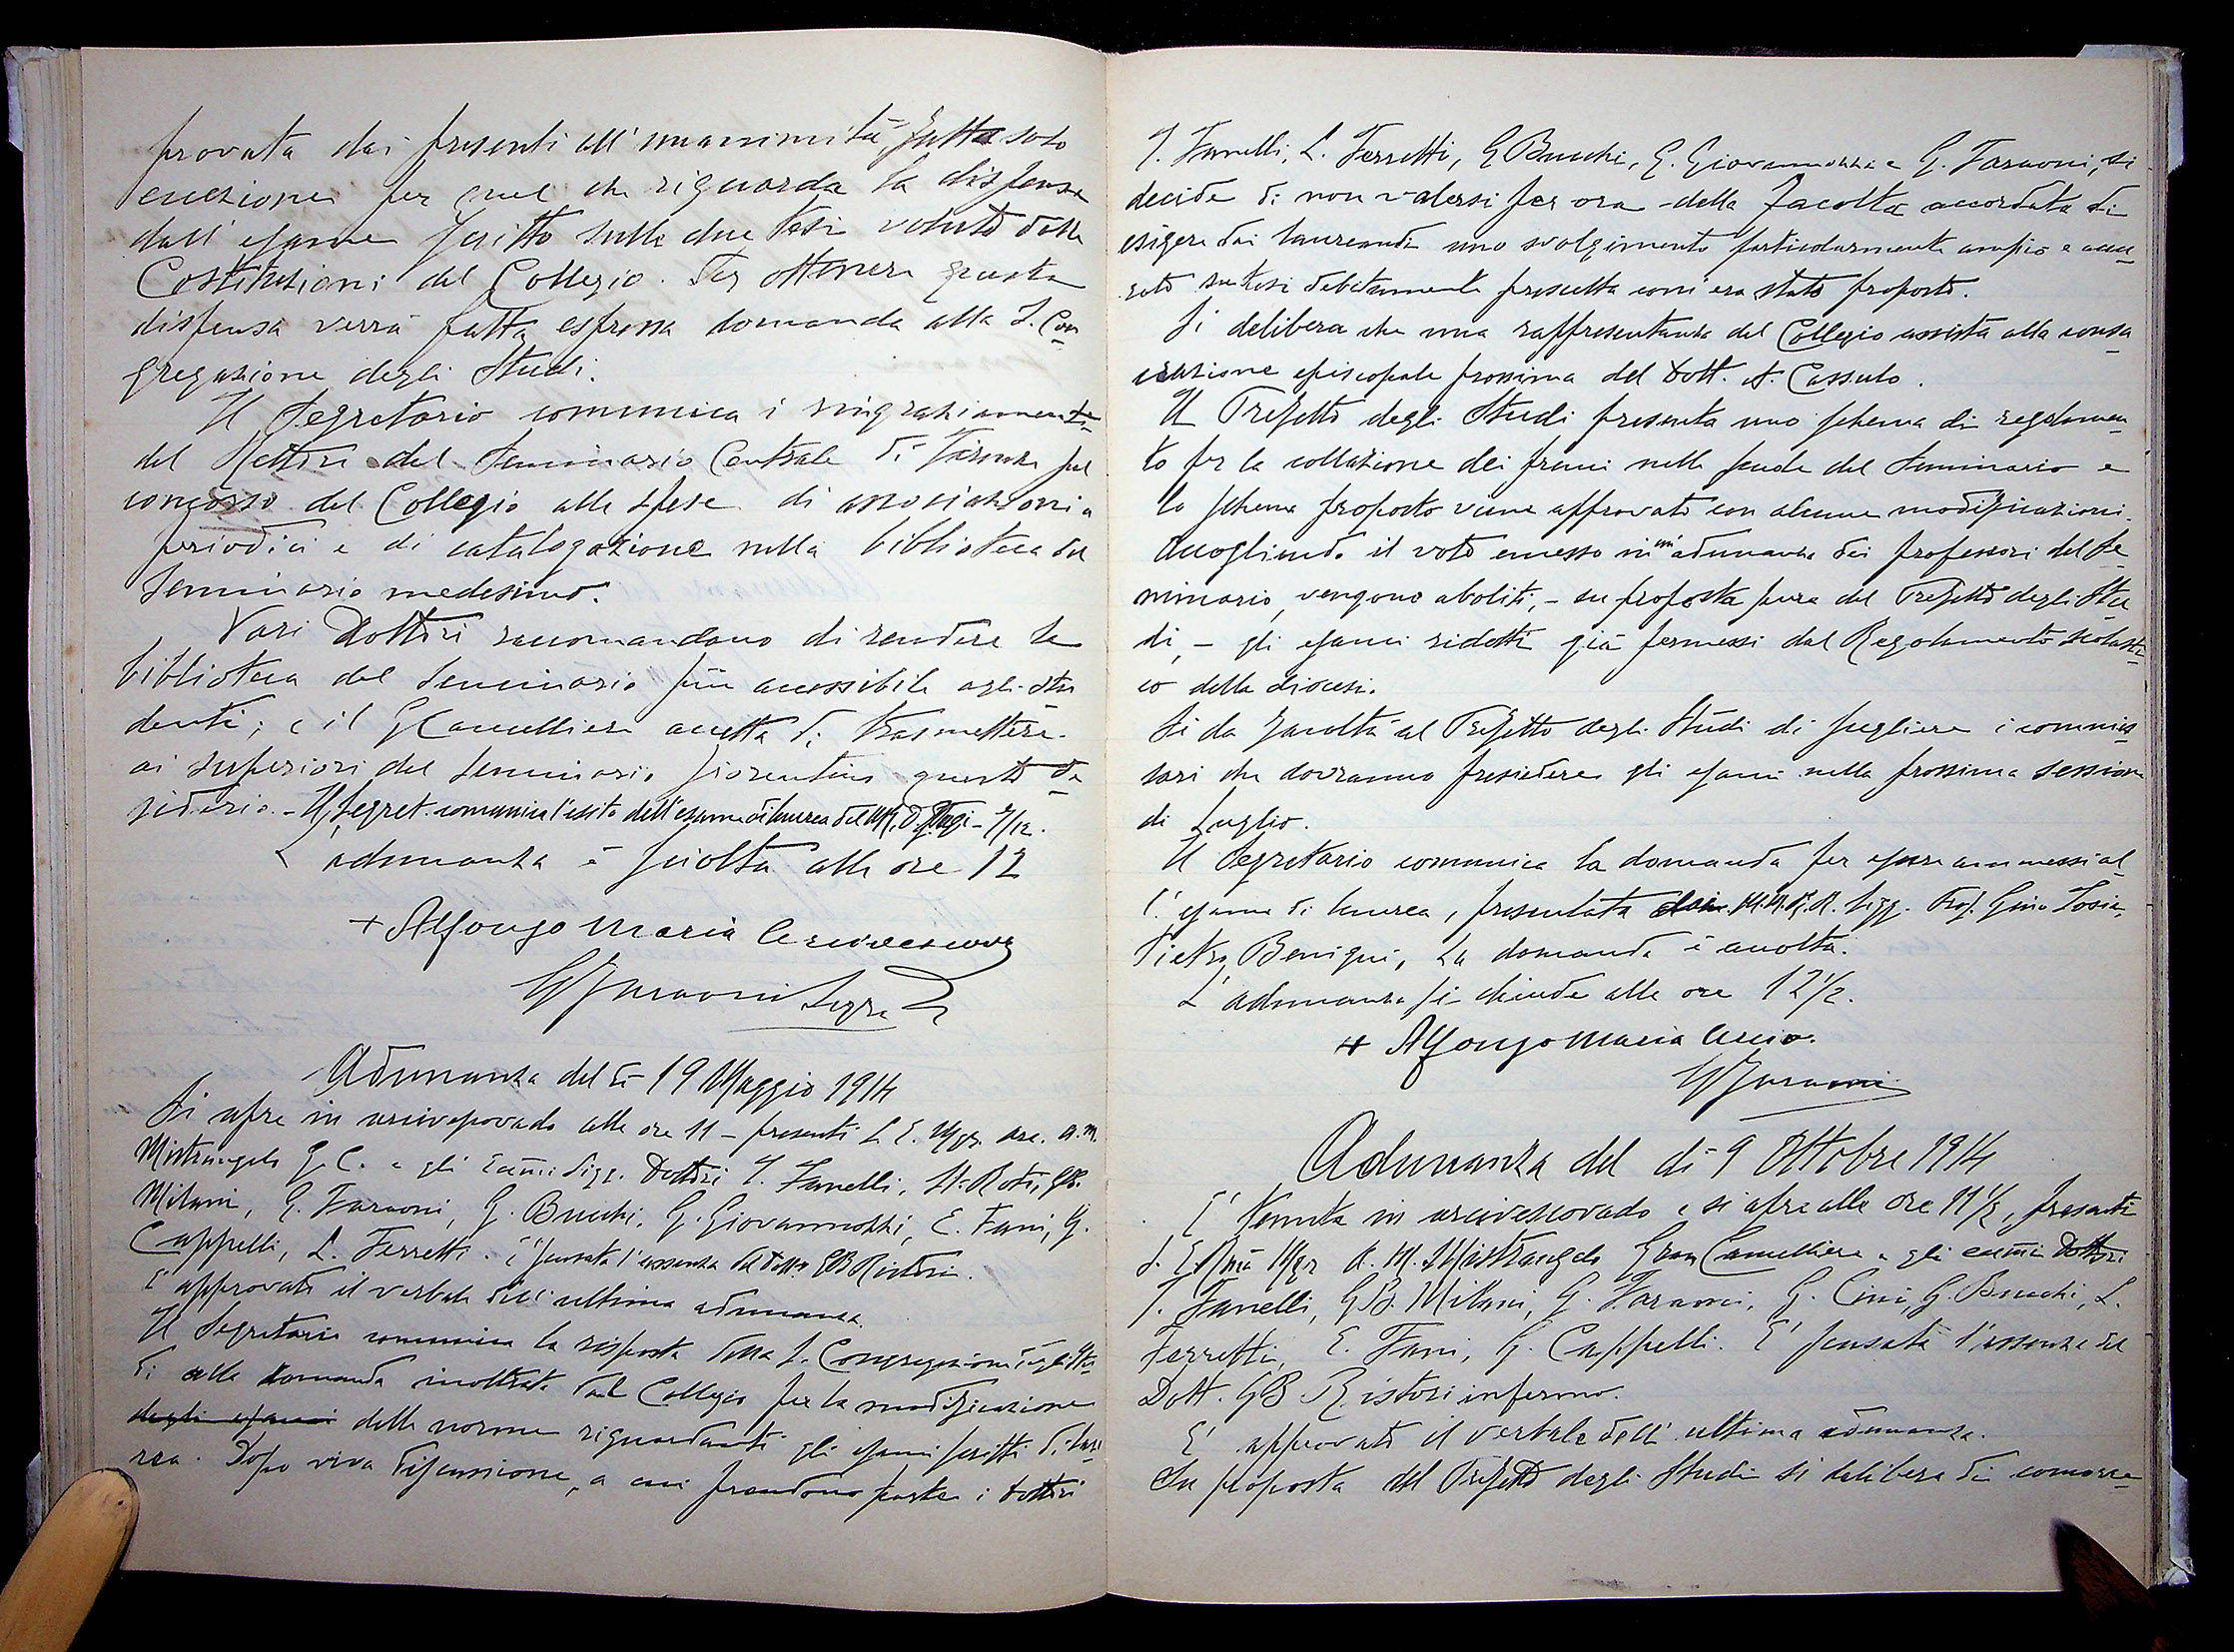 provata dai presenti all'unanimità, fatta solo
eccezione per quel che riguarda la dispensa
dall'esame scritto sulle due tesi voluto dalle
Costituzioni del Collegio. Per ottenere questa
dispensa verrà fatta espressa domanda alla S. Con
gregazione degli Studi.
Il Segretario comunica i ringraziamenti
del Rettore del Seminario Centrale di Firenze pel
concorso del Collegio alle spese di associazioni a
periodici e di catalogazione nella biblioteca del
Seminario medesimo.
Vari Dottori raccomandano di rendere la
biblioteca del Seminario più accessibile agli stu
denti; e il G Cancelliere accetta di trasmettere
ai superiori del Seminario fiorentino questo de
siderio. - Il Segret. comunica l'esito dell'esame di laurea del
L'adunanza è sciolta alle ore 12
+ Alfonso Maria Arcivescovo
G Faraoni Segr
Adunanza del dì 19 Maggio 1914
Si apre in arcivescovado alle ore 11 - presenti S. E. Mgr. Arc. A. M.
Mistrangelo G. C. e gli Ecc̄mi Sigg. Dottori T. Fanelli, Roti, GB.
Milani, G. Faraoni, G. Bucchi, G. Giovannozzi, E. Fani, G.
Cappelli, L. Ferretti. È scusata l'assenza del Dott. GB Ristori.
È approvato il verbale dell'ultima adunanza.
Il Segretario comunica la risposta della S. Congregazione degli Stu
di alla domanda inoltrata dal Collegio per la modificazione
degli esami delle norme riguardanti gli esami scritti di lau
rea. Dopo viva discussione, a cui prendono parte i dottori
T. Fanelli, L. Ferretti, G Bucchi, G. Giovannozzi e G. Faraoni, si
decide di non valersi per ora della facoltà accordata di
esigere dai laureandi uno svolgimento particolarmente ampio e accu
rato su tesi debitamente prescelta com'era stato proposto.
Si delibera che una rappresentanza del Collegio assista alla consa
crazione episcopale prossima del Dott. A. Cassulo.
Il Prefetto degli Studi presenta uno schema di regolamen
to per la collazione dei premi nelle scuole del Seminario e
lo schema proposto viene approvato con alcune modificazioni.
Accogliendo il voto emesso in un' adunanza dei professori del Se
minario, vengono aboliti, - su proposta pure del Prefetto degli Stu
di, - gli esami ridotti già permessi dal Regolamento scolasti
co della diocesi.
Si da facoltà al Prefetto degli Studi di scegliere i commis
sari che dovranno presiedere gli esami nella prossima sessione
di Luglio.
Il Segretario comunica la domanda per essere ammessi al
l'esame di laurea, presentata dai M.M. R.R. Sigg. Prof. Gino
Pietro Benigni, La domanda è accolta.
L'adunanza si chiude alle ore 12 1/2.
+ Alfonso Maria Arciv.
G Faraoni
Adunanza del dì 9 Ottobre 1914
E' tenuta in arcivescovado e si apre alle ore 11 1/2, presenti
S. E. Rm̄a Mgr A. M. Mistrangelo Gran Cancelliere e gli ecc̄mi Dottori
T. Fanelli, GB. Milani, G. Faraoni, G. Cini, G. Bucchi, L.
Ferretti, E. Fani, G. Cappelli. E' scusata l'assenza del
Dott. GB Ristori infermo.
E' approvato il verbale dell'ultima adunanza.
Su proposta del Prefetto degli Studi si delibera di concorre